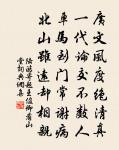 廣文風度絕清真
一代論交不數人
車馬到門常謝病
北山雖遠却相親
陸游寄題王俊卿看山
堂詞典網集